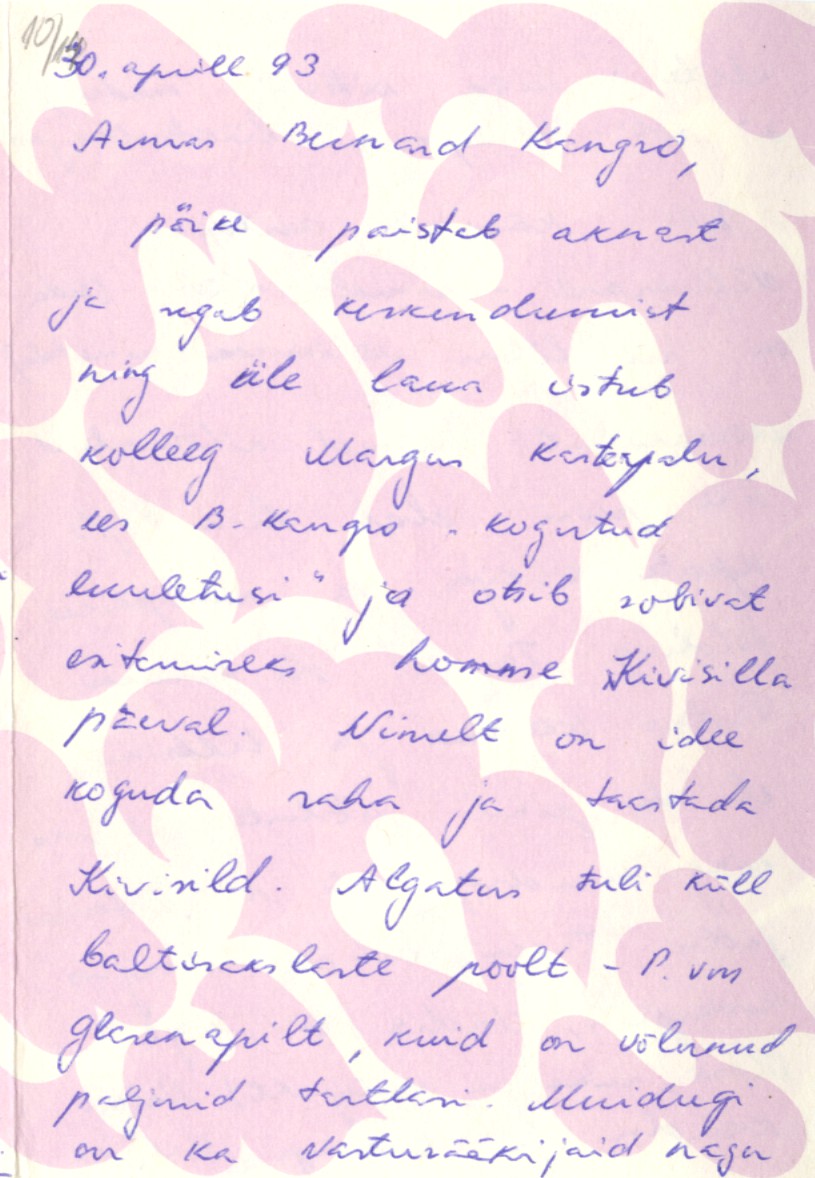 30. aprill 93
Armas Bernard Kangro,
päike paistab aknast
ja segab keskendumist
ning üle laua istub
kolleeg Margus Kasterpalu,
ees B. Kangro „Kogutud
luuletusi" ja otsib sobivat
esitamiseks homme Kivisilla
päeval. Nimelt on idee
koguda raha ja taastada
Kivisild. Algatus tuli küll
baltisakslaste poolt - P. von
Glasenapilt, kuid on võlunud
paljusid tartlasi. Muidugi
on ka vasturääkijaid nagu